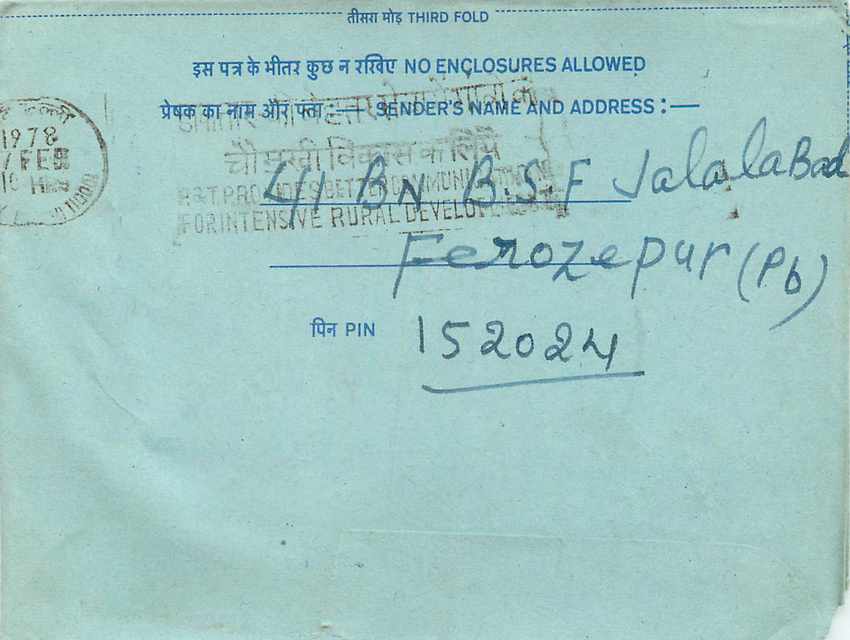 तीसरा मोड़ THIRD FOLD
इस पत्र के भीतर कुछ न रखिए NO ENCLOSURES ALLOWED
प्रेषक का नाम और पता :— SENDER'S NAME AND ADDRESS :—
1978
FEB
चौमुखी विकास के लिये
P&T. PROVIDES BETTER COMMUNICATIONS
FOR INTENSIVE RURAL DEVELOPMENT
41 BN B.S.F JalalaBad
Ferozepur (Pb)
पिन PIN 152024